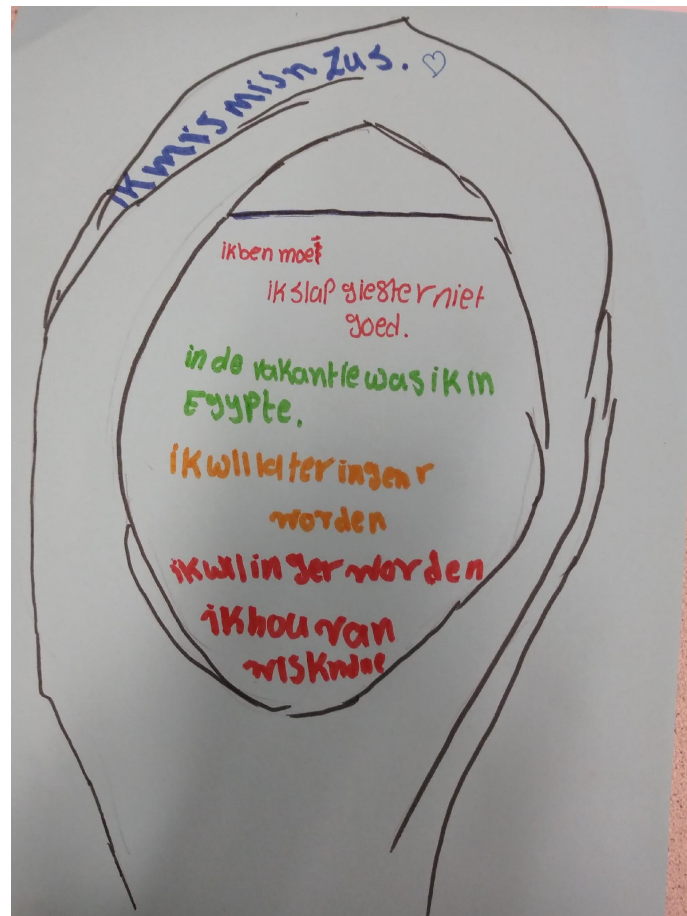 ik mis misn zus. ♡
ik ben moet
ik slap giester niet
goed.
in de vakantie was ik in
Egypte.
ik wil later ingenr
worden
ik wil inger worden
ik hou van